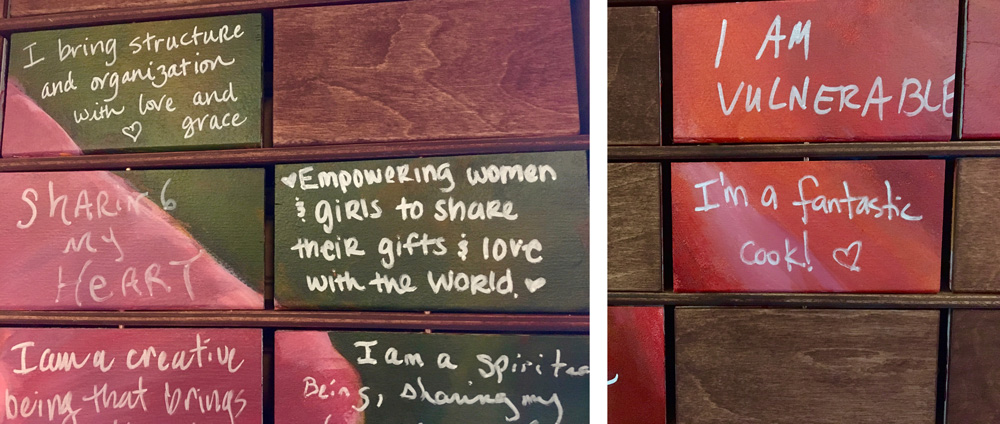 I bring structure
and organization
with love and
♡ grace
SHARING
MY
HEART
♥EMPOWERING women
& giRLS to share
theiR gifts & love
with the WORLD.♥
I am a creative
being that brings
I am a spirited
Being, sharing my
I AM
VULNERABLE
I'm a fantastic
cook! ♡